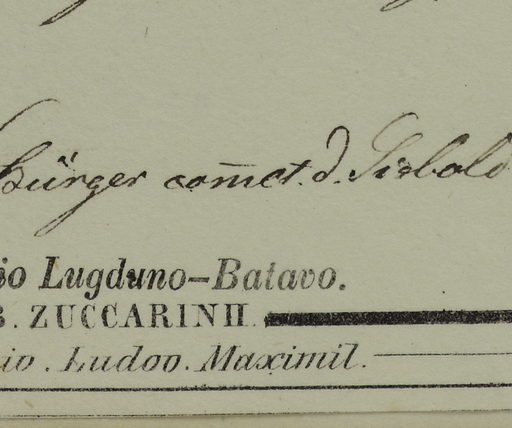 Bürger com̅ct. d. Siebold
io Lugduno-Batavo.
B. ZUCCARINII.
io. Ludov. Maximil.